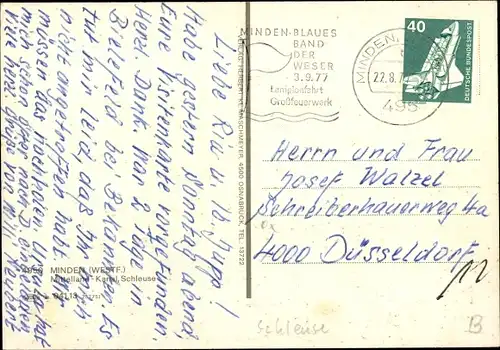 Liebe Ria u. lb. Jupp!
Habe gestern Sonntag abend,
Eure Visitenkarte vorgefunden.
Herzl. Dank. War 2 Tage in
Bielefeld bei Bekannten. Es
tut mir leid daß Ihr mich
nicht angetroffen habt.
müssen das nachholen.
mich schon öfter nach D.
Viele herzl. Grüße von
4950 MINDEN (WESTF.)
Mittelland-Kanal, Schleuse
CEKADE HEINRICH PETRASCHMEYER, 4500 OSNABRÜCK, TEL. 13722
MINDEN·BLAUES
BAND
DER
WESER
3.9.77
Lampionfahrt
Großfeuerwerk
MINDEN,
22.8.7
495
40
DEUTSCHE BUNDESPOST
Herrn und Frau
Josef Walzel
Schreiberhauerweg 4a
4000 Düsseldorf
Schleuse
B